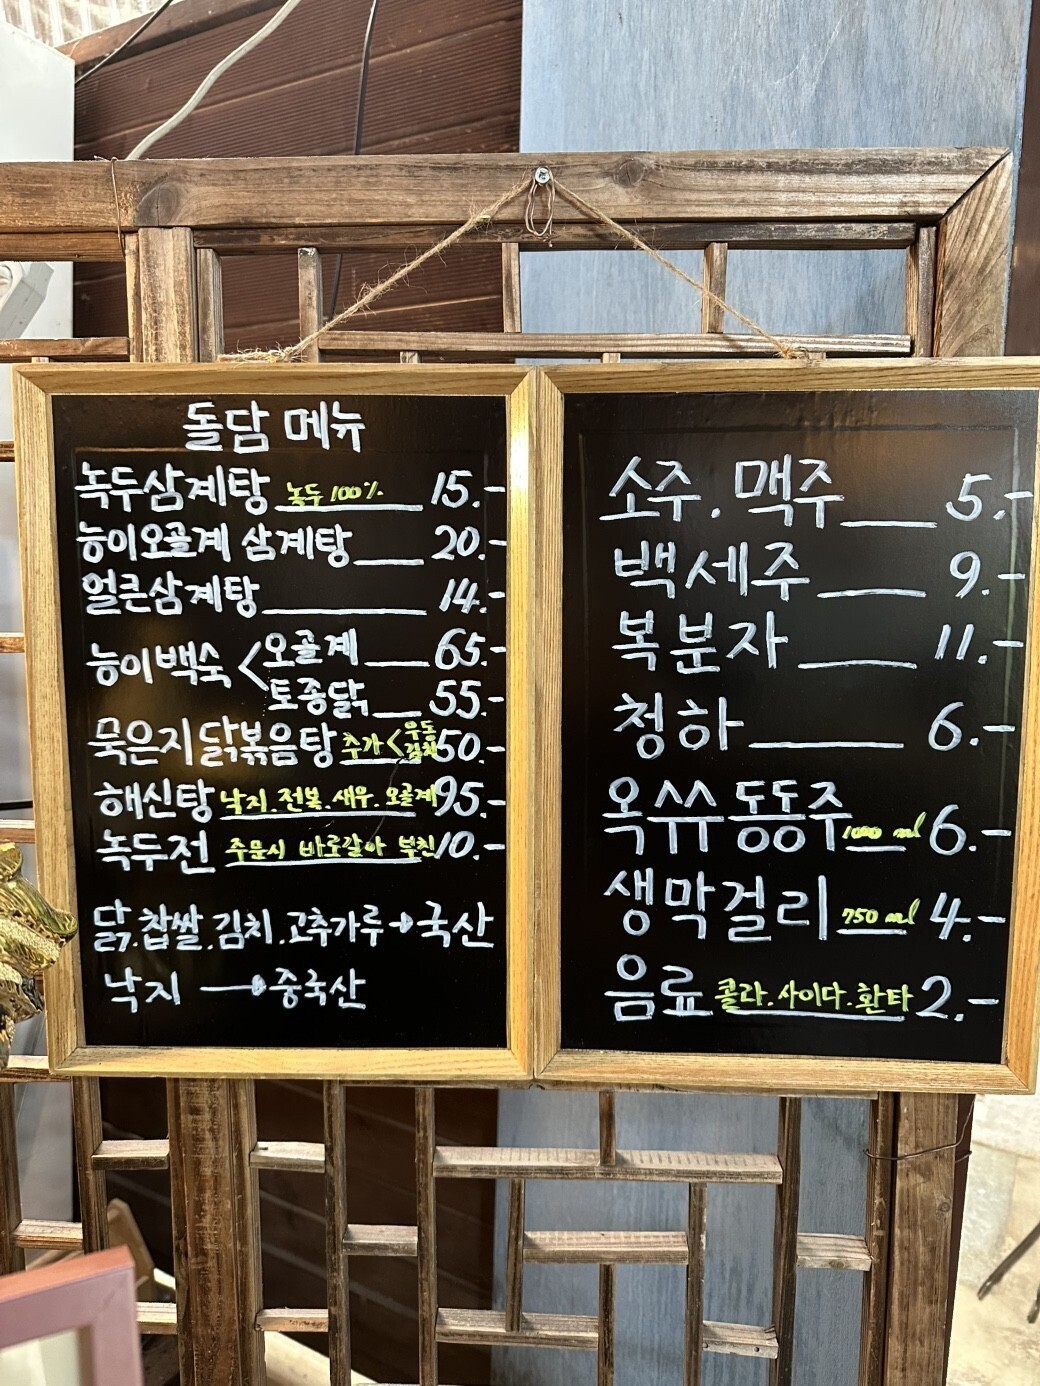 돌담 메뉴
녹두삼계탕 녹두 100% 15.-
능이오골계 삼계탕 20.-
얼큰삼계탕 14.-
능이백숙 < 오골계 65.-
토종닭 55.-
묵은지닭볶음탕 추가 < 우동 김치 50.-
해신탕 낙지.전복.새우.오골계 95.-
녹두전 주문시 바로갈아 부친 10.-
닭.찹쌀.김치.고추가루→국산
낙지 → 중국산
소주.맥주 5.-
백세주 9.-
복분자 11.-
청하 6.-
옥수수동동주 1000 ml 6.-
생막걸리 750 ml 4.-
음료 콜라.사이다.환타 2.-